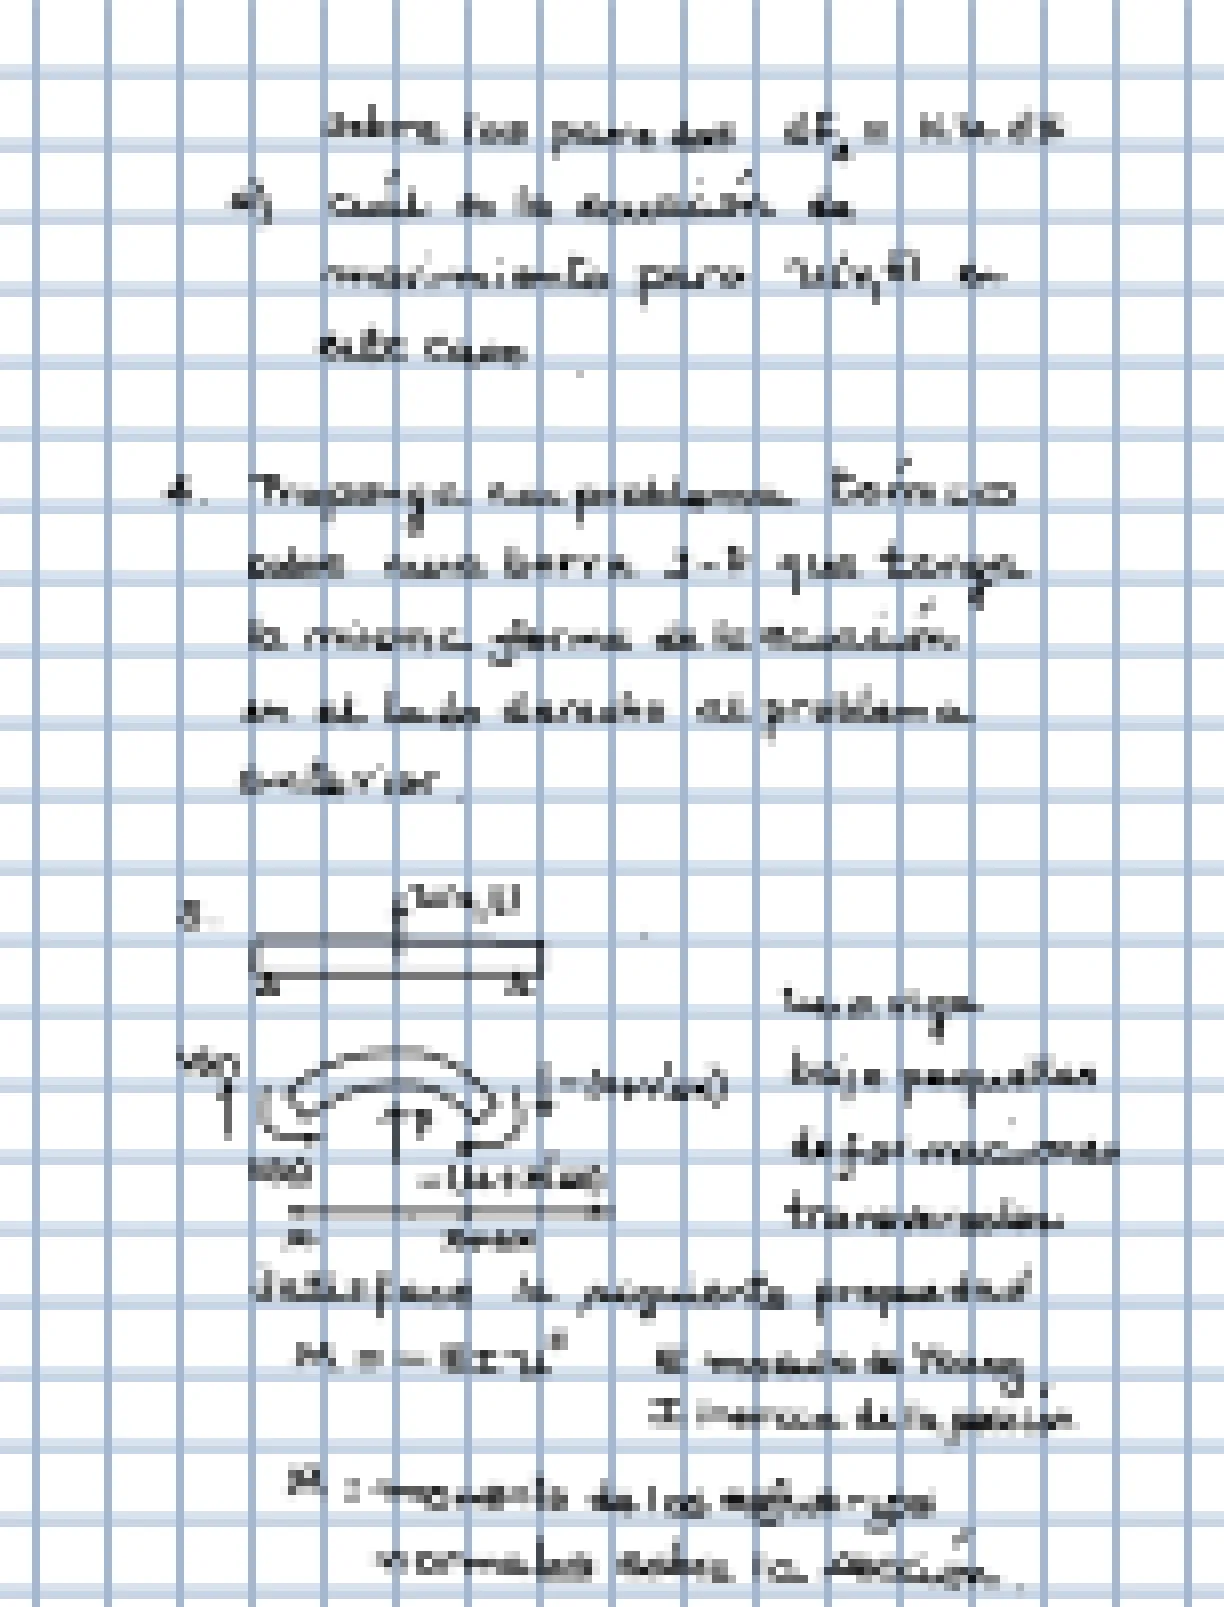 sobre las paredes dF = k u dx
a) Cuál es la ecuación de
movimiento para u(x,t) en
este caso
4. Proponga un problema térmico
sobre una barra 1-D que tenga
la misma forma de la ecuación
en el lado derecho al problema
anterior.
u(x,t)
Una viga
V(x)
bajo pequeñas
P
deformaciones
M(x)
transversales
x x+dx
satisface la siguiente propiedad
M = - EIu" E modulo de Young
I inercia de la sección
M : momento de los esfuerzos
normales sobre la sección.